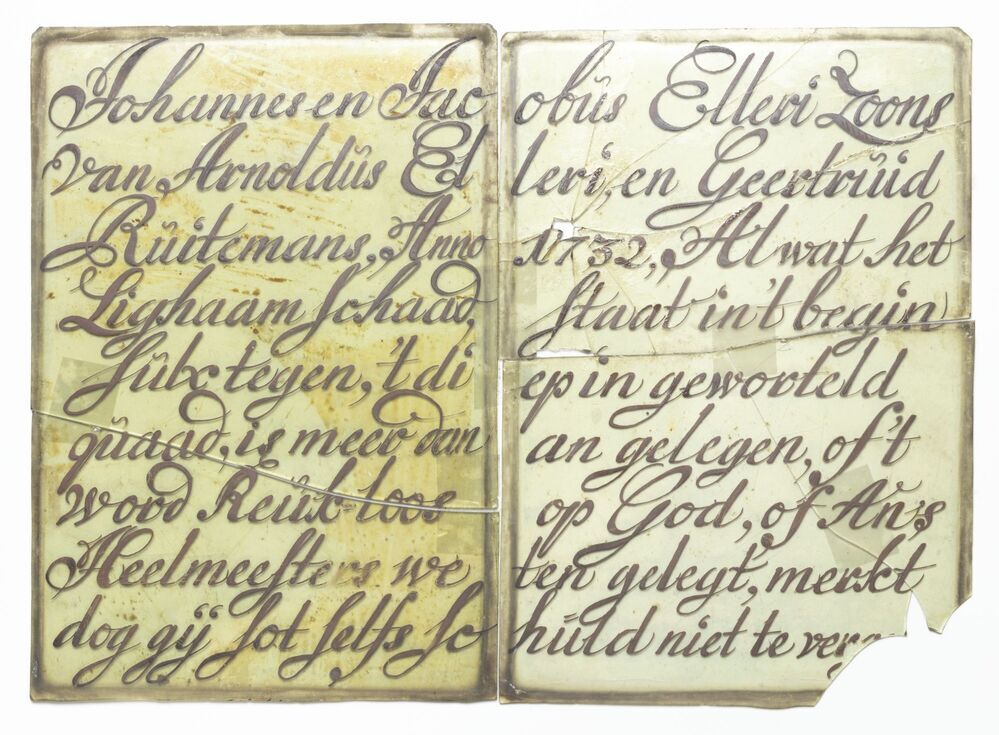 Johannes en Jacobûs Elleri Zoons
van Arnoldûs Elleri, en Geertrûid
Rûitemans, Anno 1732, Al wat het
Lighaam schaad, staat in't begin
sûbc tegen, 't diep in geworteld
qûaad, is meer dan an gelegen, of't
word Reûk-loos op God, of An's
Heelmeesters westen gelegt, merkt
dog gÿ sot selfs schûld niet te